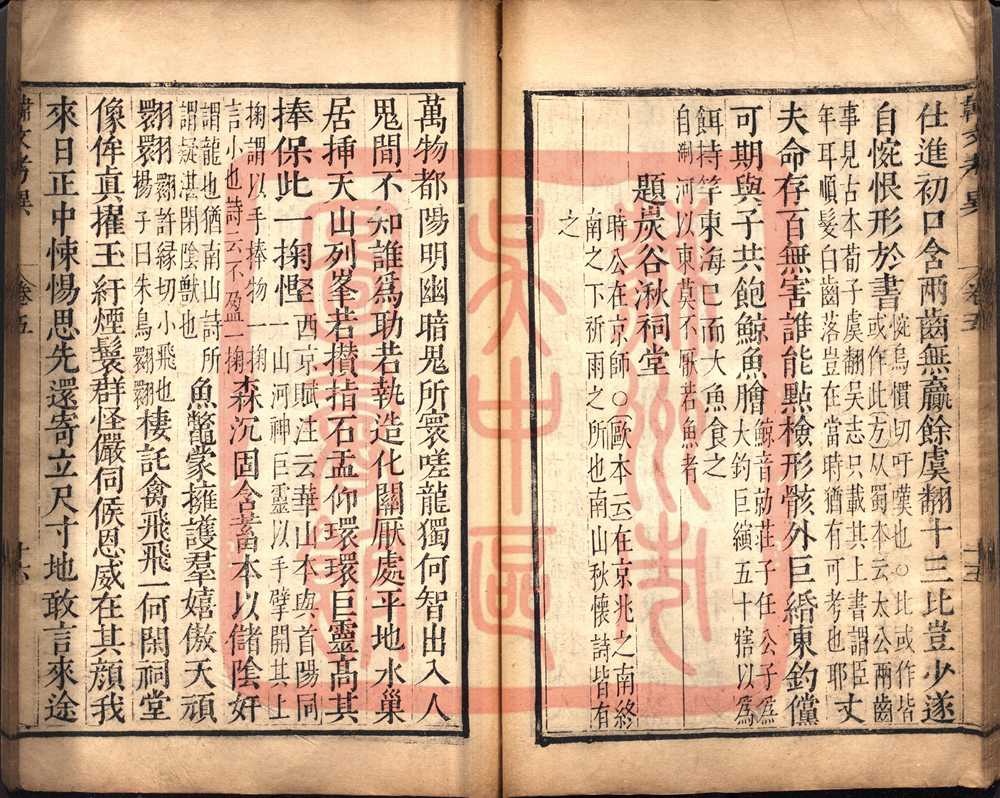 仕進初口含兩齒無贏餘虞翻十三比豈少遂
自惋恨形於書
惋烏慣切吁嘆也○比或作皆
書或作此方从蜀本云太公兩齒
事見古本荀子虞翻吳志只載其上書謂臣
年耳順髮白齒落豈在當時猶有可考也耶
丈
夫命存百無害誰能點檢形骸外巨緡東釣儻
可期與子共飽鯨魚膾
鯨音勍莊子任公子爲
大釣巨緇五十犗以爲
餌持竿東海巳而大魚食之
自淛河以東莫不厭若魚者
題炭谷湫祠堂
時公在京師○歐本云在京兆之南終
南之下祈雨之所也南山秋懷詩皆有
之
韓文考異
卷五
十五
萬物都陽明幽暗鬼所寰嗟龍獨何智出入人
鬼間不知誰爲助若執造化關厭處平地水巢
居揷天山列峯若攅指石盂仰環環巨靈高其
捧保此一掬慳
西京賦注云華山本與首陽同
一山河神巨靈以手擘開其上
掬謂以手捧物一掬
言小也詩云不盈一掬
森沉固含蓄本以儲陰奸
謂龍也猶南山詩所
謂凝湛閉陰獸也
魚鼈蒙擁護羣嬉傲天頑
翾翾
翾許緣切小飛也
揚子曰朱鳥翾翾
棲託禽飛飛一何閑祠堂
像侔眞擢玉紆煙鬟群怪儼伺候恩威在其顏我
來日正中悚惕思先還寄立尺寸地敢言來途
韓文考異
卷五
十六